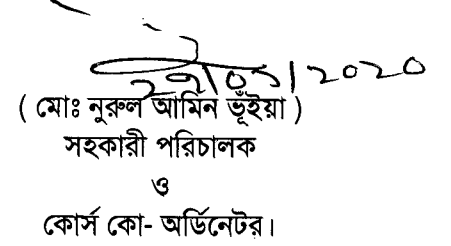 ২৭/০১/২০২০
( মোঃ নুরুল আমিন ভূঁইয়া )
সহকারী পরিচালক
ও
কোর্স কো- অর্ডিনেটর।